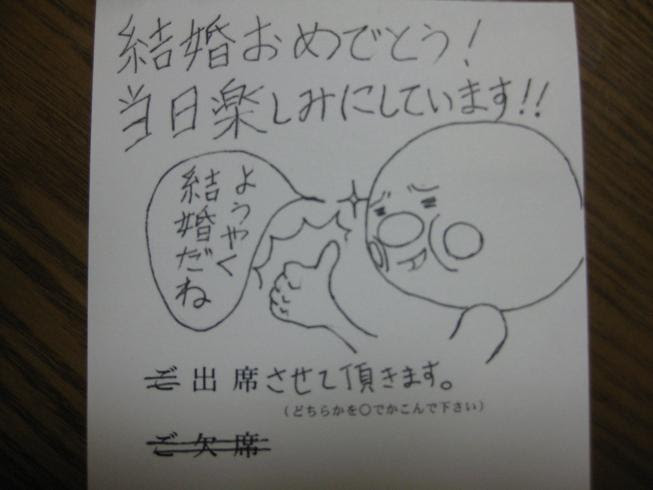 結婚おめでとう!
当日楽しみにしています!!
ようやく
結婚だね
ご出席させて頂きます。
(どちらかを○でかこんで下さい)
ご欠席